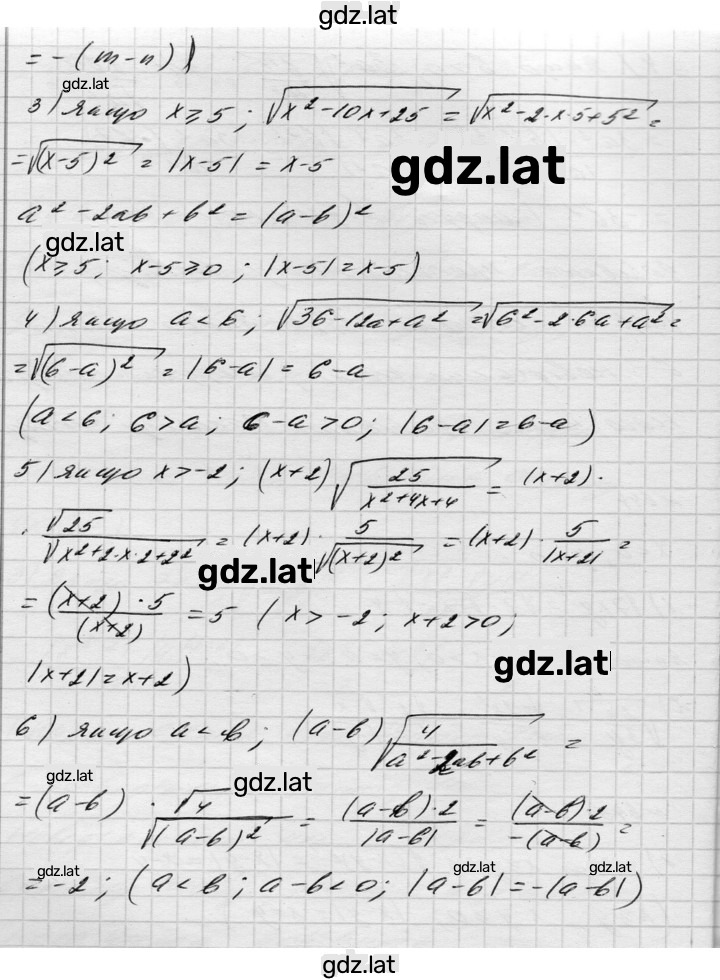 gdz.lat
= -(m-n))
gdz.lat
3) якщо x ≥ 5; √(x² - 10x + 25) = √(x² - 2·x·5 + 5²) =
= √((x-5)²) = |x-5| = x-5
gdz.lat
a² - 2ab + b² = (a-b)²
gdz.lat
(x ≥ 5; x-5 ≥ 0; |x-5| = x-5)
4) якщо a < 6; √(36 - 12a + a²) = √(6² - 2·6a + a²) =
= √((6-a)²) = |6-a| = 6-a
(a < 6; 6 > a; 6-a > 0; |6-a| = 6-a)
5) якщо x > -2; (x+2) √(25/(x²+4x+4)) = (x+2)·
· √25/√(x²+2·x·2+2²) = (x+2) · 5/√((x+2)²) = (x+2) · 5/|x+2| =
gdz.lat
= (x+2)·5/(x+2) = 5 (x > -2; x+2 > 0;
gdz.lat
|x+2| = x+2)
6) якщо a < b; (a-b) √(4/(a²-2ab+b²)) =
gdz.lat
gdz.lat
= (a-b) · √4/√((a-b)²) = (a-b)·2/|a-b| = (a-b)·2/-(a-b) =
gdz.lat
gdz.lat
gdz.lat
= -2; (a < b; a-b < 0; |a-b| = -(a-b))
gdz.lat